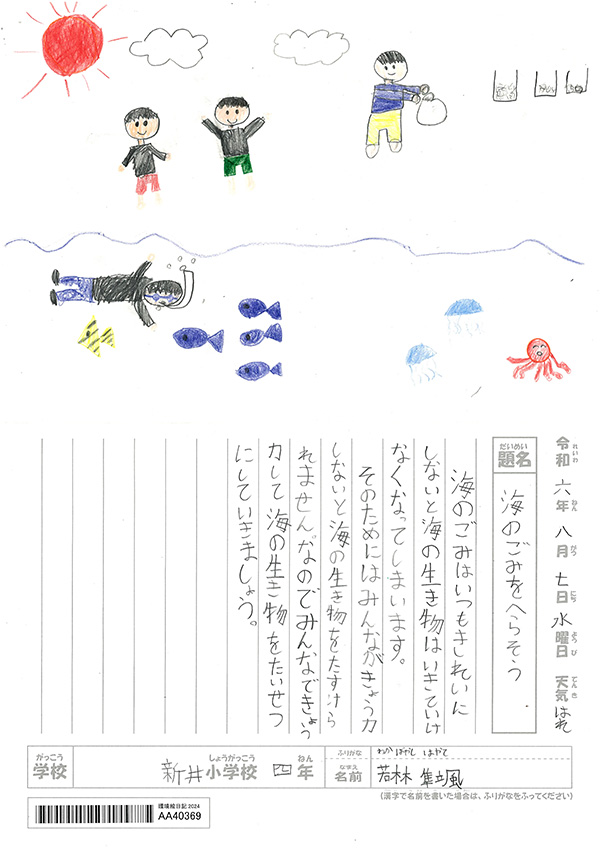 令和六年八月七日水曜日天気はれ
題名 海のごみをへらそう
海のごみはいつもきれいに
しないと海の生き物はいきていけ
なくなってしまいます。
そのためにはみんながきょう力
しないと海の生き物をたすけら
れませんなのでみんなできょう
力して海の生き物をたいせつ
にしていきましょう。
学校 新井小学校 四年
ふりがな わかばやし はやて
名前 若林 隼颯
(漢字で名前を書いた場合は、ふりがなをふってください)
環境絵日記2024
AA40369